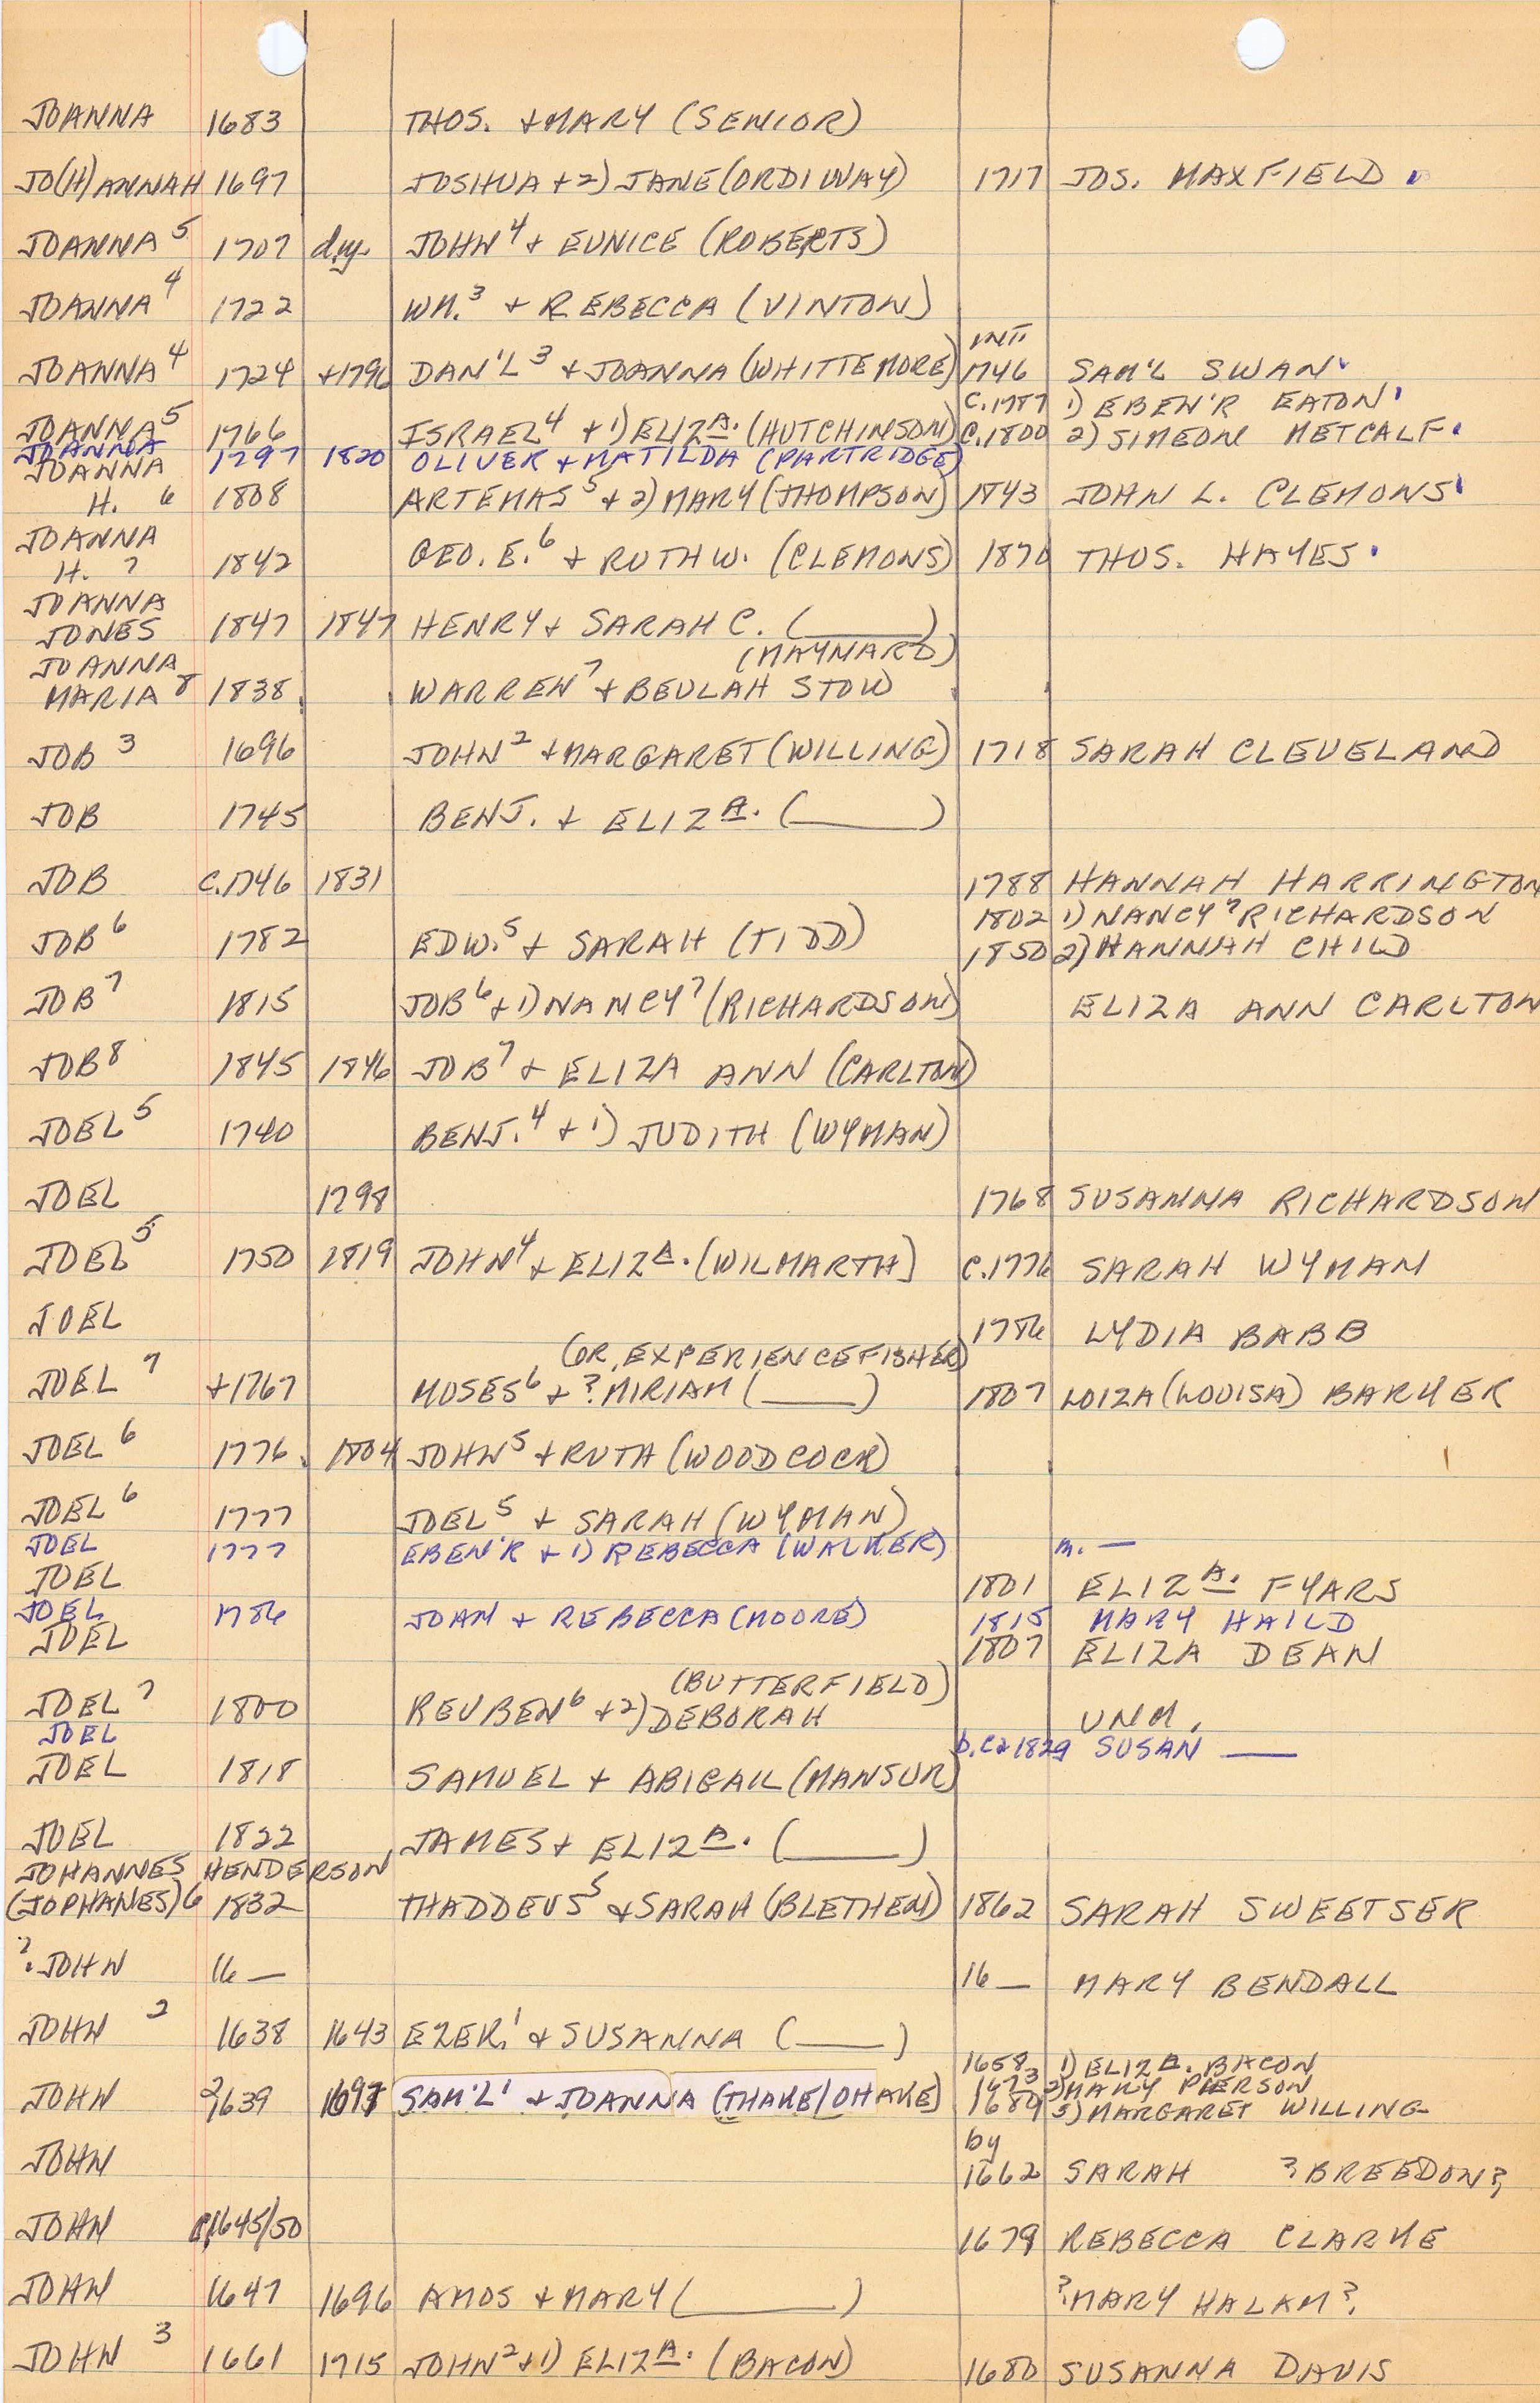 JOANNA 1683 THOS. + MARY (SENIOR)
JO(H)ANNAH 1697 JOSHUA + 2) JANE (ORDIWAY) 1717 JOS. MAXFIELD
JOANNA 5 1707 d.y. JOHN 4 + EUNICE (ROBERTS)
JOANNA 4 1722 WM. 3 + REBECCA (VINTON)
INT.
JOANNA 4 1724 +1796 DAN'L 3 + JOANNA (WHITTEMORE) 1746 SAM'L SWAN
C.1787 1) EBEN'R EATON
JOANNA 5 1766 ISRAEL 4 + 1) ELIZA. (HUTCHINSON) C.1800 2) SIMEON METCALF
JOANNA 1797 1820 OLIVER + MATILDA (PARTRIDGE)
JOANNA
H. 6 1808 ARTEMAS 5 + 2) MARY (THOMPSON) 1843 JOHN L. CLEMONS
JOANNA
H. 7 1842 GEO. E. 6 + RUTH W. (CLEMONS) 1870 THOS. HAYES
JOANNA
JONES 1847 1847 HENRY + SARAH C. (____)
JOANNA (MAYNARD)
MARIA 8 1838 WARREN 7 + BEULAH STOW
JOB 3 1696 JOHN 2 + MARGARET (WILLING) 1718 SARAH CLEVELAND
JOB 1745 BENJ. + ELIZA. (____)
JOB C.1746 1831 1788 HANNAH HARRINGTON
1802 1) NANCY 7 RICHARDSON
JOB 6 1782 EDW. 5 + SARAH (TIDD) 1850 2) HANNAH CHILD
JOB 7 1815 JOB 6 + 1) NANCY 7 (RICHARDSON) ELIZA ANN CARLTON
JOB 8 1845 1846 JOB 7 + ELIZA ANN (CARLTON)
JOEL 5 1740 BENJ. 4 + 1) JUDITH (WYMAN)
JOEL 1798 1768 SUSANNA RICHARDSON
JOEL 5 1750 1819 JOHN 4 + ELIZA. (WILMARTH) C.1776 SARAH WYMAN
JOEL 1786 LYDIA BABB
(OR, EXPERIENCE FISHER)
JOEL 7 +1767 MOSES 6 + ? MIRIAM (____) 1807 LOIZA (LOUISA) BARKER
JOEL 6 1776 1804 JOHN 5 + RUTH (WOODCOCK)
JOEL 6 1777 JOEL 5 + SARAH (WYMAN)
JOEL 1777 EBEN'R + 1) REBECCA (WALKER) m. —
JOEL 1801 ELIZA. FYARS
JOEL 1786 JOHN + REBECCA (MOORE) 1815 MARY HAILD
JOEL 1807 ELIZA DEAN
(BUTTERFIELD)
JOEL 7 1800 REUBEN 6 + 2) DEBORAH UNM.
JOEL b. ca 1829 SUSAN ——
JOEL 1818 SAMUEL + ABIGAIL (MANSUR)
JOEL 1822 JAMES + ELIZA. (____)
JOHANNES HENDERSON
(JOPHANES) 6 1832 THADDEUS 5 + SARAH (BLETHEN) 1862 SARAH SWEETSER
? JOHN 16— 16— MARY BENDALL
JOHN 2 1638 1643 EZEK. 1 + SUSANNA (____)
1658 1) ELIZA. BACON
1673 2) MARY PIERSON
JOHN 2 1639 1697 SAM'L 1 + JOANNA (THAKE/OHAKE) 1689 3) MARGARET WILLING
by
JOHN 1662 SARAH ?BREEDON?
JOHN C.1645/50 1679 REBECCA CLARKE
JOHN 1647 1696 AMOS + MARY (____) ?MARY HALAM?
JOHN 3 1661 1715 JOHN 2 + 1) ELIZA. (BACON) 1680 SUSANNA DAVIS